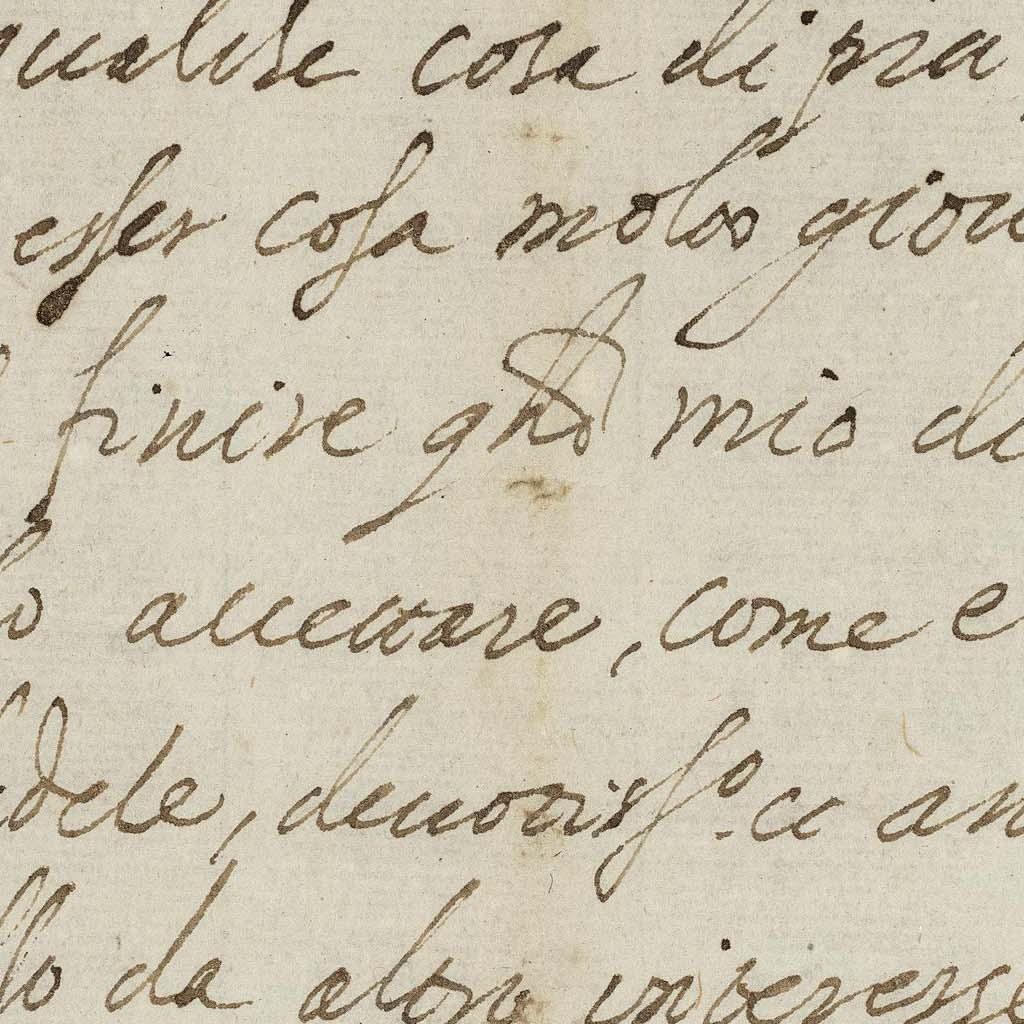 qualche cosa di piu
esser cosa molto giou
finire qñdo mio di
lo accettare, come e
fidele, deuotiss.o a an
llo da altri interesse